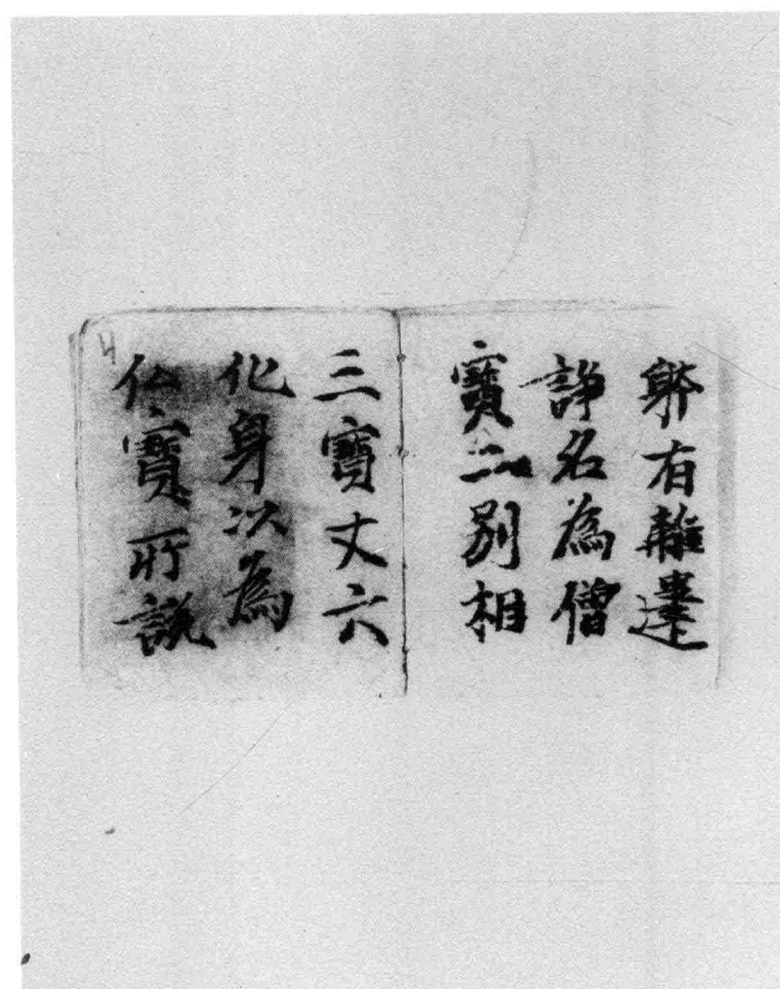 躰有離違
諍名為僧
寶二別相
三寶丈六
化身以為
仏寶所説
4